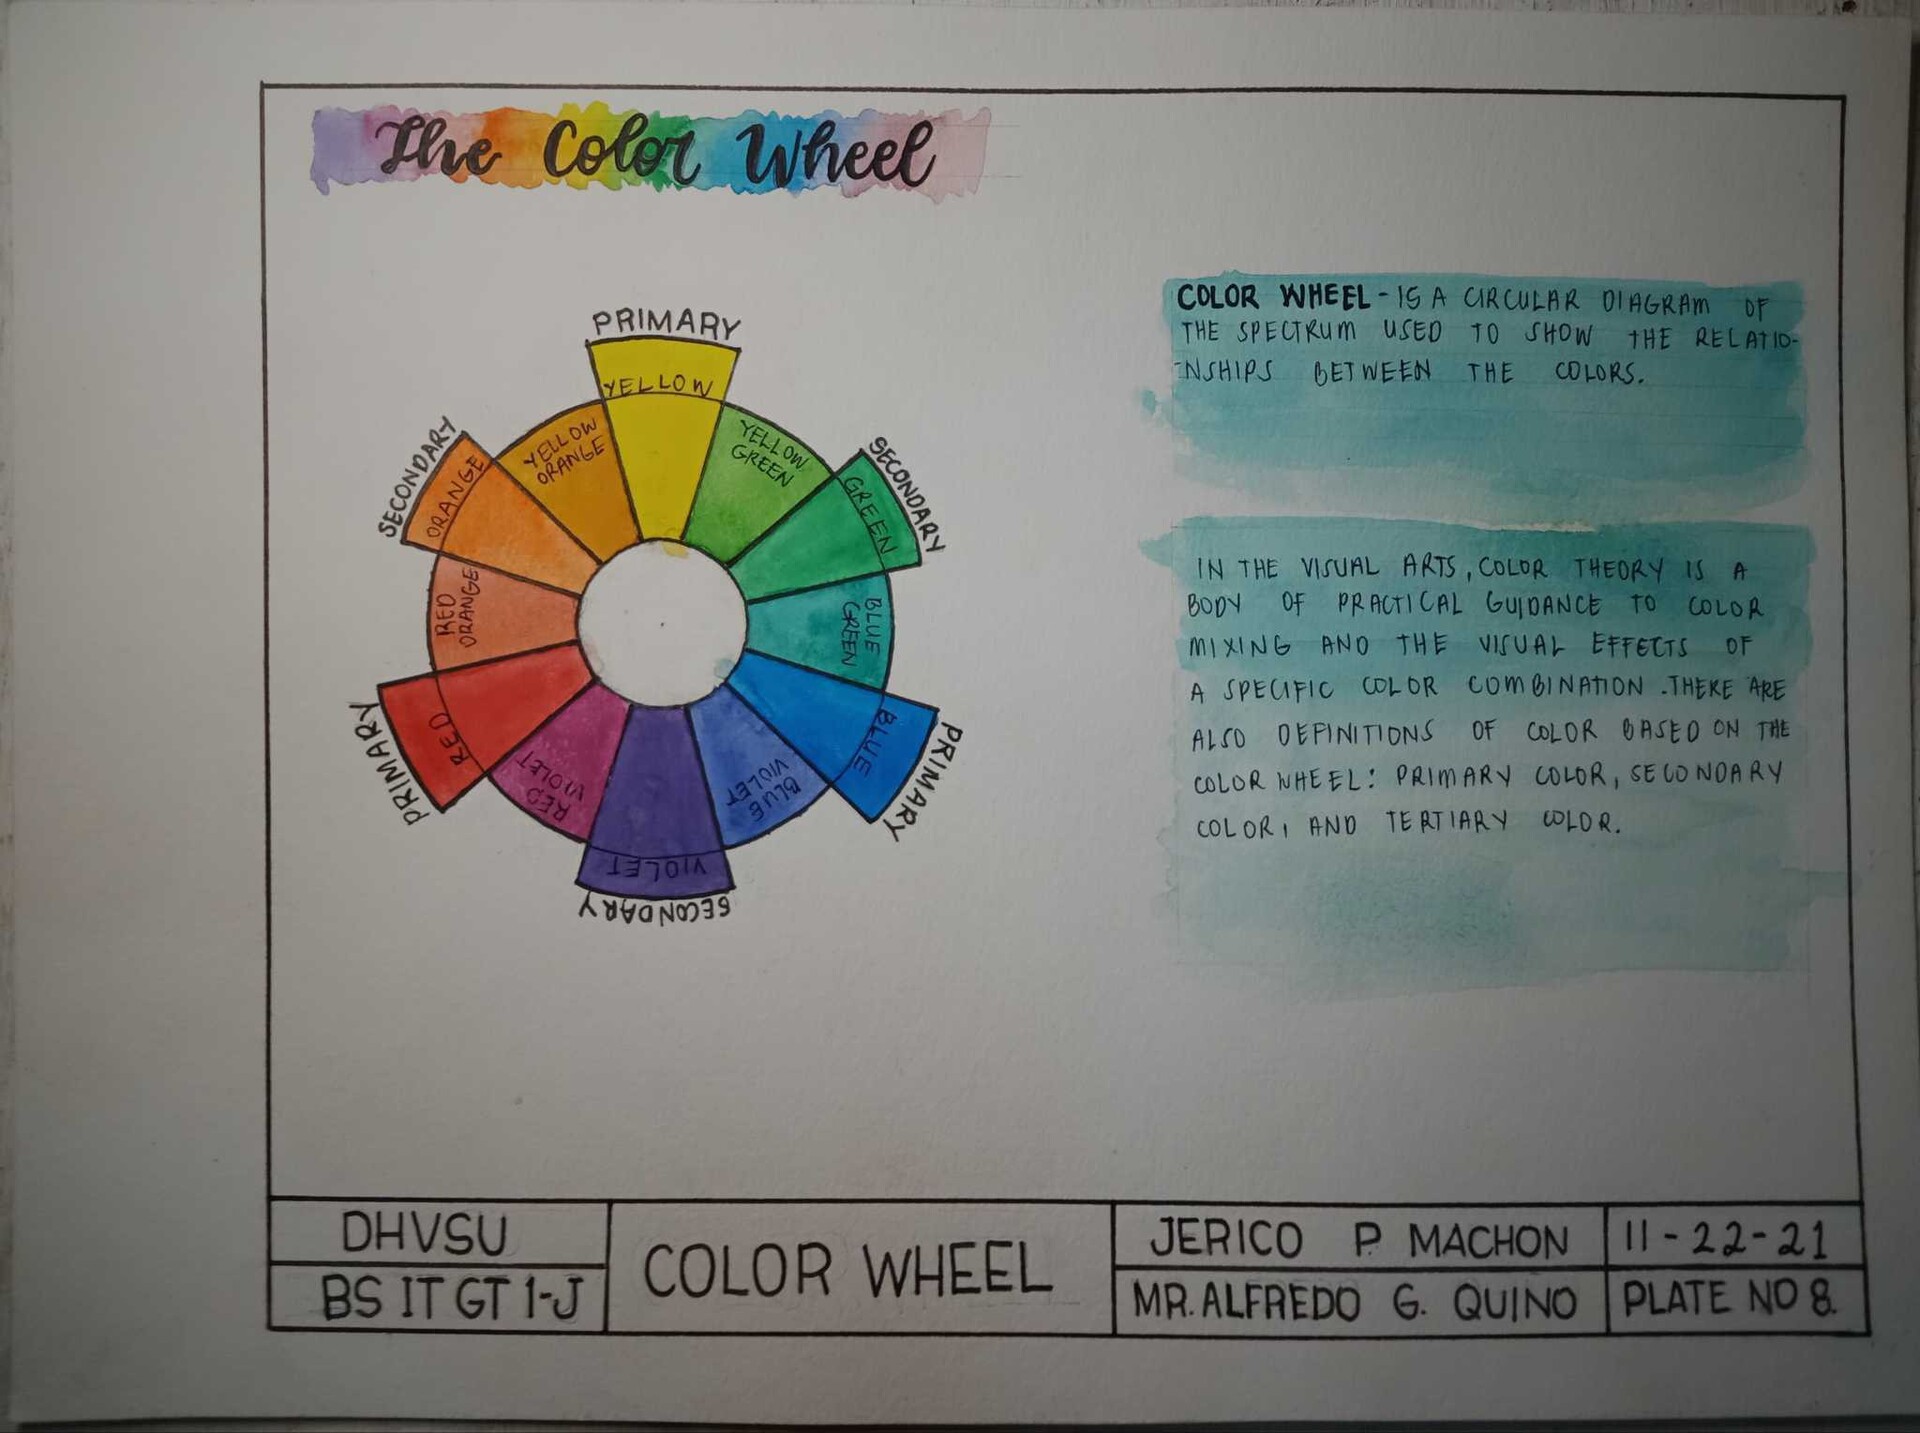 The Color Wheel
PRIMARY
YELLOW
YELLOW
GREEN
SECONDARY
GREEN
BLUE
GREEN
PRIMARY
BLUE
BLUE
VIOLET
SECONDARY
VIOLET
RED
VIOLET
PRIMARY
RED
RED
ORANGE
SECONDARY
ORANGE
YELLOW
ORANGE
COLOR WHEEL - IS A CIRCULAR DIAGRAM OF
THE SPECTRUM USED TO SHOW THE RELATIO-
-NSHIPS BETWEEN THE COLORS.
IN THE VISUAL ARTS, COLOR THEORY IS A
BODY OF PRACTICAL GUIDANCE TO COLOR
MIXING AND THE VISUAL EFFECTS OF
A SPECIFIC COLOR COMBINATION. THERE ARE
ALSO DEFINITIONS OF COLOR BASED ON THE
COLOR WHEEL: PRIMARY COLOR, SECONDARY
COLOR, AND TERTIARY COLOR.
DHVSU
BS IT GT 1-J
COLOR WHEEL
JERICO P. MACHON
MR. ALFREDO G. QUINO
11-22-21
PLATE NO 8.